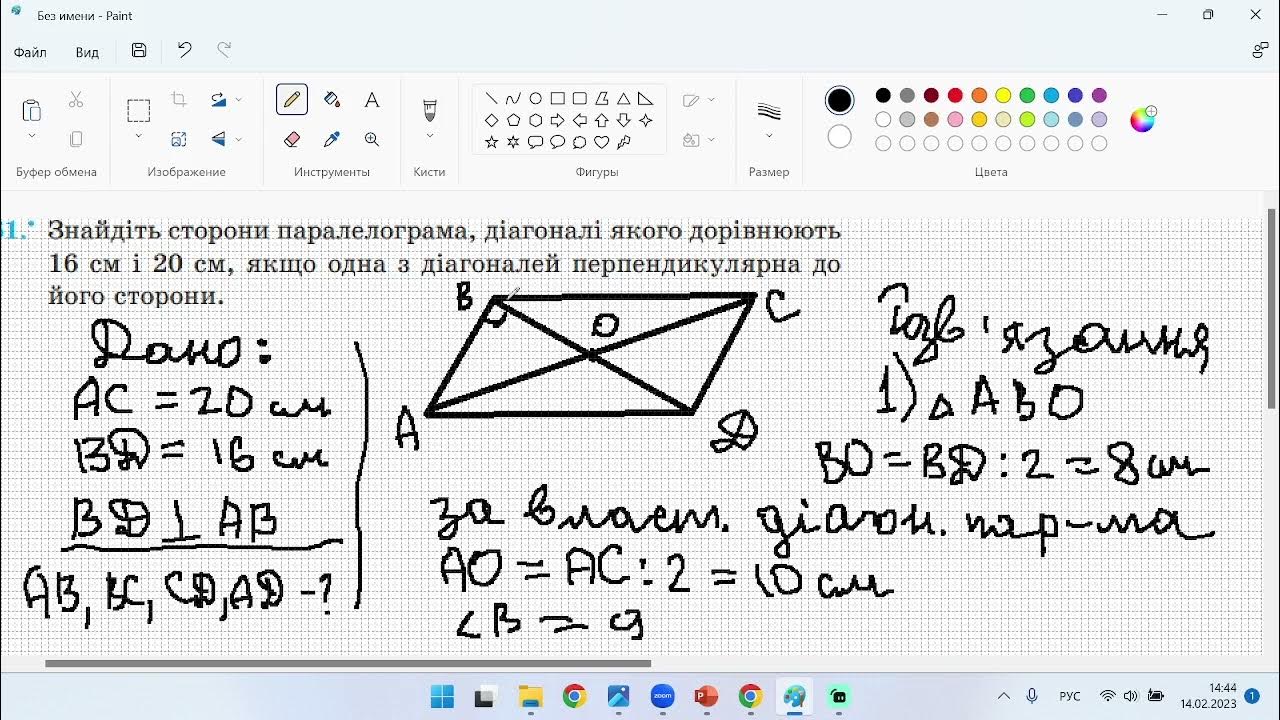 Без имени - Paint
Файл Вид
Буфер обмена Изображение Инструменты Кисти Фигуры Размер Цвета
31.* Знайдіть сторони паралелограма, діагоналі якого дорівнюють
16 см і 20 см, якщо одна з діагоналей перпендикулярна до
його сторони.
B C
O
A D
Дано:
AC = 20 см
BD = 16 см
BD ⊥ AB
AB, BC, CD, AD - ?
Розв'язання
1) △ ABO
BO = BD : 2 = 8 см
за власт. діагон. пар-ма
AO = AC : 2 = 10 см
∠B = 9
zoom
РУС
14:44
14.02.2023
1